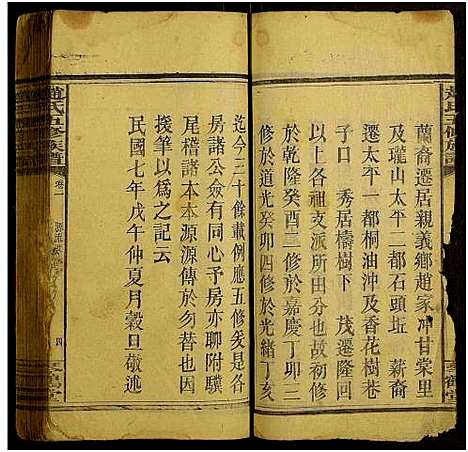 趙氏五修族譜
蘭裔遷居親義鄉趙家冲甘棠里
及瓏山太平二都石頭坵 薪裔
遷太平一都桐油沖及香花樹巷
子口 秀居檮樹下 茂遷隆回
以上各祖支派所由分也故初修
於乾隆癸酉二修於嘉慶丁卯三
修於道光癸卯四修於光緒丁亥
琴鶴堂
迄今三十餘載例應五修爰是各
房諸公僉有同心予房亦聊附驥
尾稽諸本本源源傳於勿替也因
援筆以爲之記云
民國七年戊午仲夏月穀旦敬述
趙氏五修族譜
卷一
四
琴鶴堂